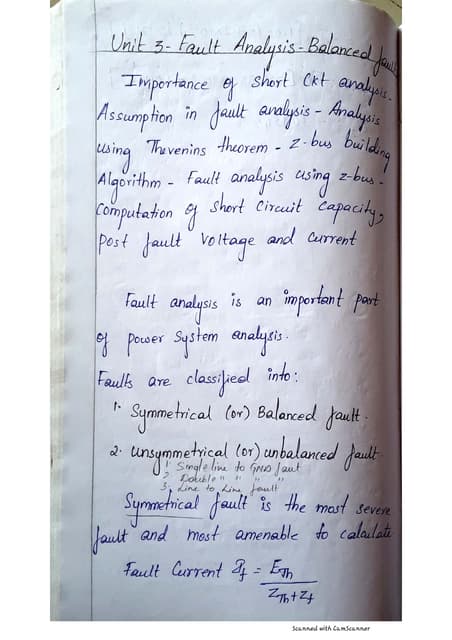 Unit 3 - Fault Analysis - Balanced fault
Importance of short Ckt analysis -
Assumption in fault analysis - Analysis
using Thevenins theorem - Z-bus building
Algorithm - Fault analysis using z-bus -
Computation of short circuit capacity,
Post fault Voltage and Current
Fault analysis is an important part
of power System analysis.
Faults are classified into:
1. Symmetrical (or) Balanced fault.
2. Unsymmetrical (or) unbalanced fault
1. Single line to GND faut
2. Double " " " "
3. Line to Line fault
Symmetrical fault is the most severe
fault and most amenable to calculate
Fault Current If = ETh
ZTh + Zf
Scanned with CamScanner